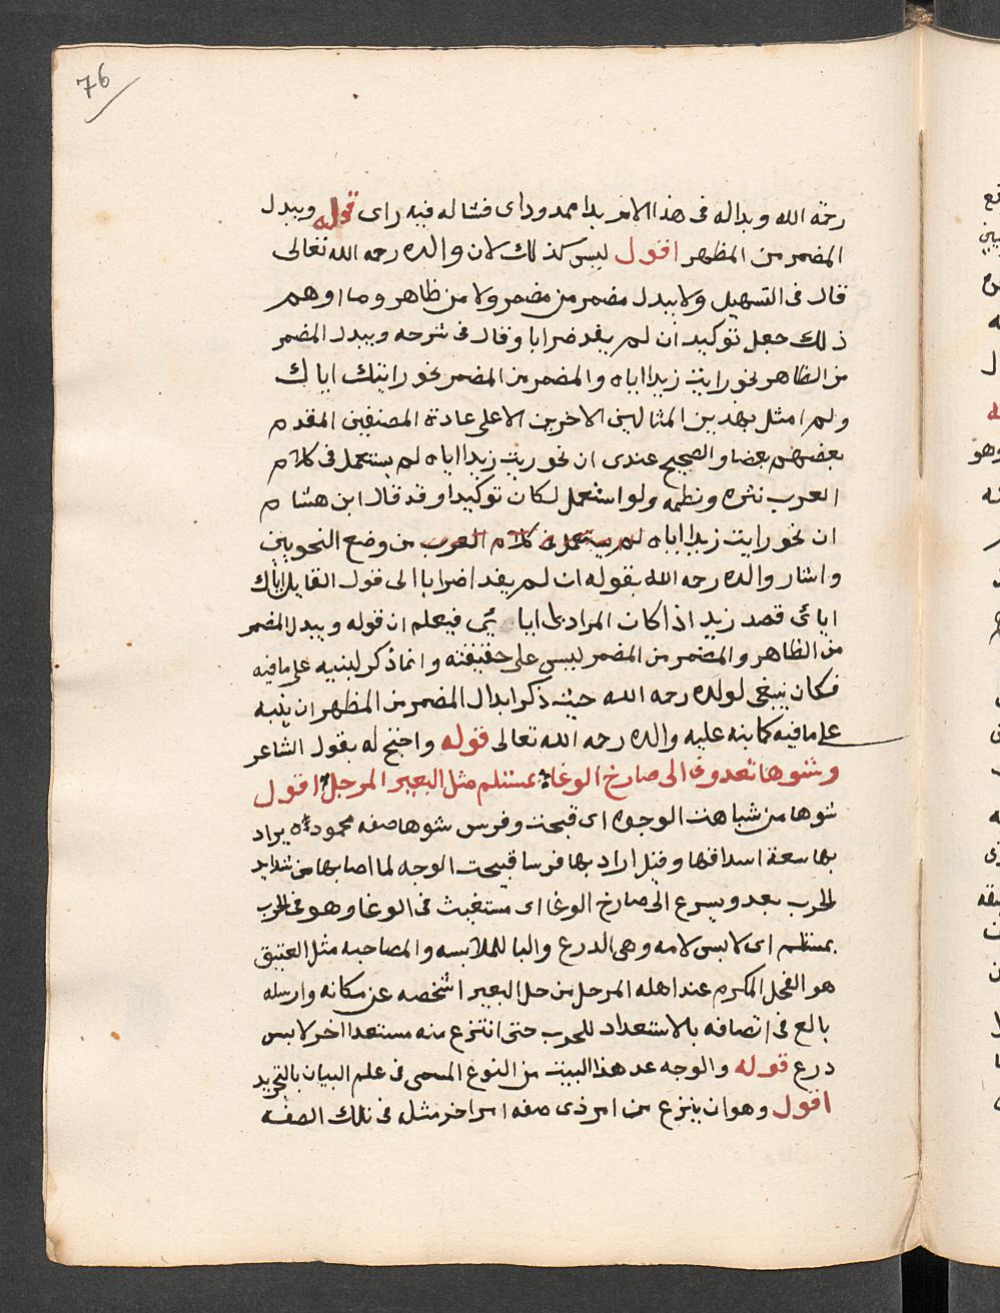 76
رحمه الله وبداله فى هذا الامر بدا ممدوداى فشا له فيه راى قوله ويبدل
المضمر من المظهر اقول ليس كذلك لان والده رحمه الله تعالى
قال فى التسهيل ولا يبدل مضمر من مضمر ولا من ظاهر وما اوهم
ذلك جعل توكيد ان لم يفد ضرابا وقال فى شرحه ويبدل المضمر
من الظاهر نحو رايت زيدا اياه والمضمر من المضمر نحو رايتك اياك
ولم امثل بهذين المثالين الاخرين الا على عادة المصنفين المقدم
بعضهم بعضا والصحيح عندى ان نحو ريت زيدا اياه لم يستعمل فى كلام
العرب نثره ونظمه ولو استعمل لكان توكيدا وقد قال ابن هشام
ان نحو رايت زيدا اياه لم يستعمل فى كلام العرب من وضع النحويين
واشار والده رحمه الله بقوله ان لم يفد اضرابا الى قول القايل اياك
اياى قصد زيد اذا كان المراد بل اياى فيعلم ان قوله ويبدل المضمر
من الظاهر والمضمر من المضمر ليس على حقيقته وانما ذكر لينبه على مافيه
فكان ينبغى لولده رحمه الله حيث ذكر ابدال المضمر من المظهر ان ينبه
على مافيه كما نبه عليه والده رحمه الله تعالى قوله واحتج له بقول الشاعر
وشوها تعدو بى الى صارخ الوغا بمستلم مثل البعير المرحل اقول
شوها من شاهت الوجوه اى قبحت وفرس شوها صفه محموده يراد
بها سعة اشداقها وقيل اراد بها فرسا قبيحت الوجه لما اصابها من شدايد
الحرب بعدو يسرع الى صارخ الوغا اى مستغيث فى الوغا وهو فى الحرب
بمستلم اى لابس لامه وهى الدرع والبا للملابسه والمصاحبه مثل العتيق
هو الفحل المكرم عند اهله المرحل من حل البعير اشخصه عن مكانه وارسله
بالغ فى اتصافه بالاستعداد للحرب حتى انتزع منه مستعدا اخر لابس
درع قوله والوجه عد هذا البيت من النوع المسمى فى علم البيان بالتجريد
اقول وهو ان ينزع من امر ذى صفه امر اخر مثله فى تلك الصفه